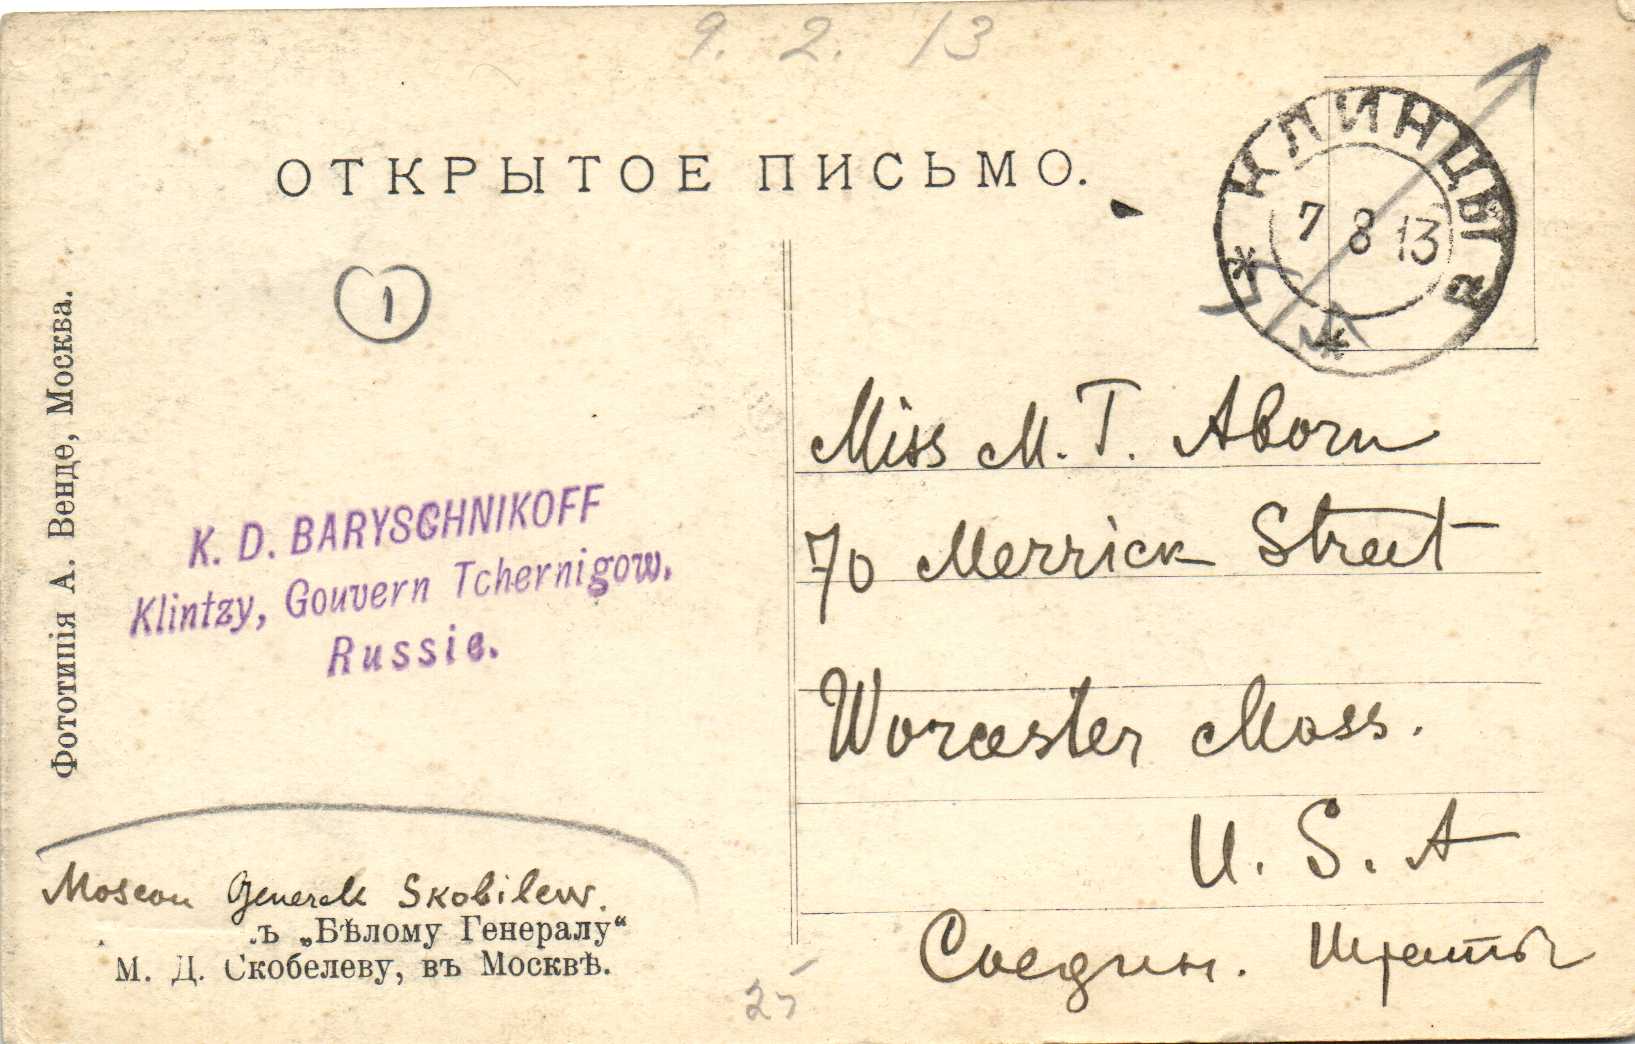 9. 2. 13
ОТКРЫТОЕ ПИСЬМО.
КЛИНЦЫ
7 8 13
а
1
Фототипія А. Венде, Москва.
K. D. BARYSCHNIKOFF
Klintzy, Gouvern Tchernigow.
Russie.
Miss M. T. Aborn
70 Merrick Street
Worcester Mass.
U. S. A
Соедин. Штаты
Moscou Generalk Skobilew.
ъ „Бѣлому Генералу“
М. Д. Скобелеву, въ Москвѣ.
25